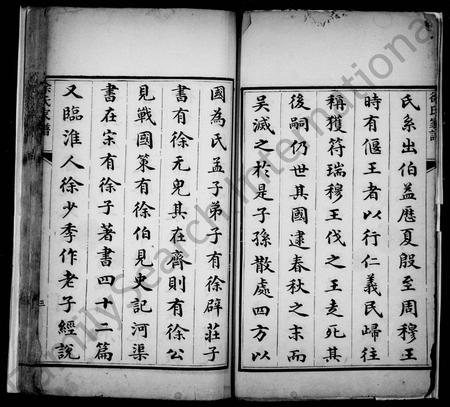 氏系出伯益歷夏殷至周穆王
時有偃王者以行仁義民歸往
稱獲符瑞穆王伐之王走死其
後嗣仍世其國逮春秋之末而
吳滅之於是子孫散處四方以
國為氏孟子弟子有徐辟莊子
書有徐无鬼其在齊則有徐公
見戰國策有徐伯見史記河渠
書在宋有徐子著書四十二篇
又臨淮人徐少季作老子經說
徐氏家譜
三
FamilySearch International